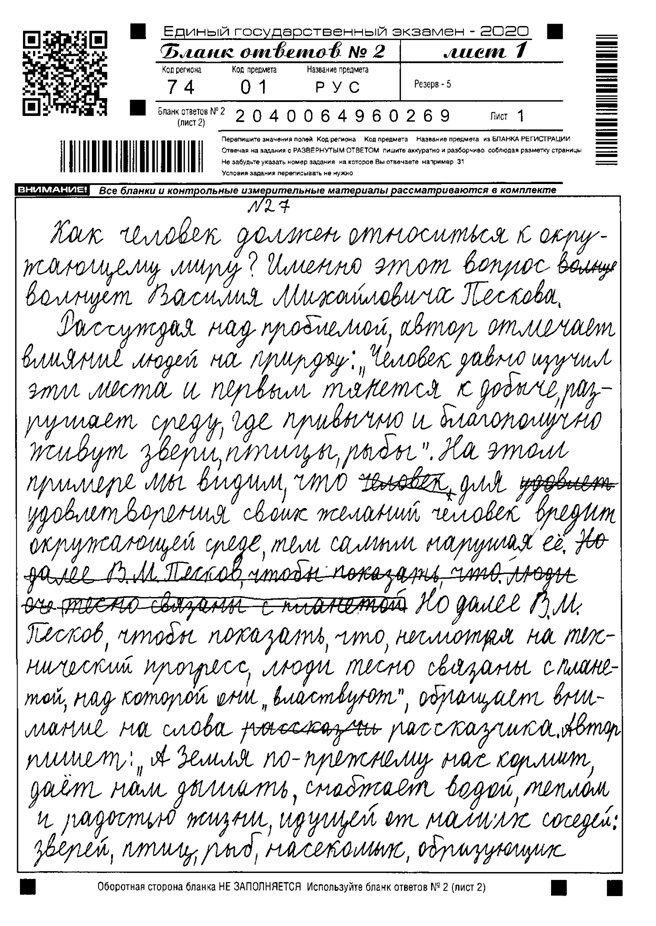 Единый государственный экзамен - 2020
Бланк ответов № 2 лист 1
Код региона Код предмета Название предмета Резерв - 5
74 01 РУС
Бланк ответов № 2 (лист 2) 2040064960269 Лист 1
Перепишите значения полей Код региона Код предмета Название предмета из БЛАНКА РЕГИСТРАЦИИ
Отвечая на задания с РАЗВЕРНУТЫМ ОТВЕТОМ пишите аккуратно и разборчиво соблюдая разметку страницы
Не забудьте указать номер задания на которое Вы отвечаете например 31
Условия задания переписывать не нужно
ВНИМАНИЕ! Все бланки и контрольные измерительные материалы рассматриваются в комплекте
№27
Как человек должен относиться к окру-
жающему миру? Именно этот вопрос волнуе
волнует Василия Михайловича Пескова.
Рассуждая над проблемой, автор отмечает
влияние людей на прирду: „Человек давно изучил
эти места и первым тянется к добыче, раз-
рушает среду, где привычно и благополучно
живут звери, птицы, рыбы". На этом
примере мы видим, что человек, для удовлет
удовлетворения своих желаний человек вредит
окружающей среде, тем самым нарушая её. Но
далее В.М. Песков, чтобы показать, что люди
тесно связаны с планетой Но далее В.М.
Песков, чтобы показать, что, несмотря на тех-
нический прогресс, люди тесно связаны с плане-
той, над которой они „властвуют", обращает вни-
мание на слова рассказчи рассказчика. Автор
пишет: „А Земля по-прежнему нас кормит,
даёт нам дышать, снабжает водой, теплом
и радостью жизни, идущей от наших соседей:
зверей, птиц, рыб, насекомых, образующих
Оборотная сторона бланка НЕ ЗАПОЛНЯЕТСЯ Используйте бланк ответов № 2 (лист 2)